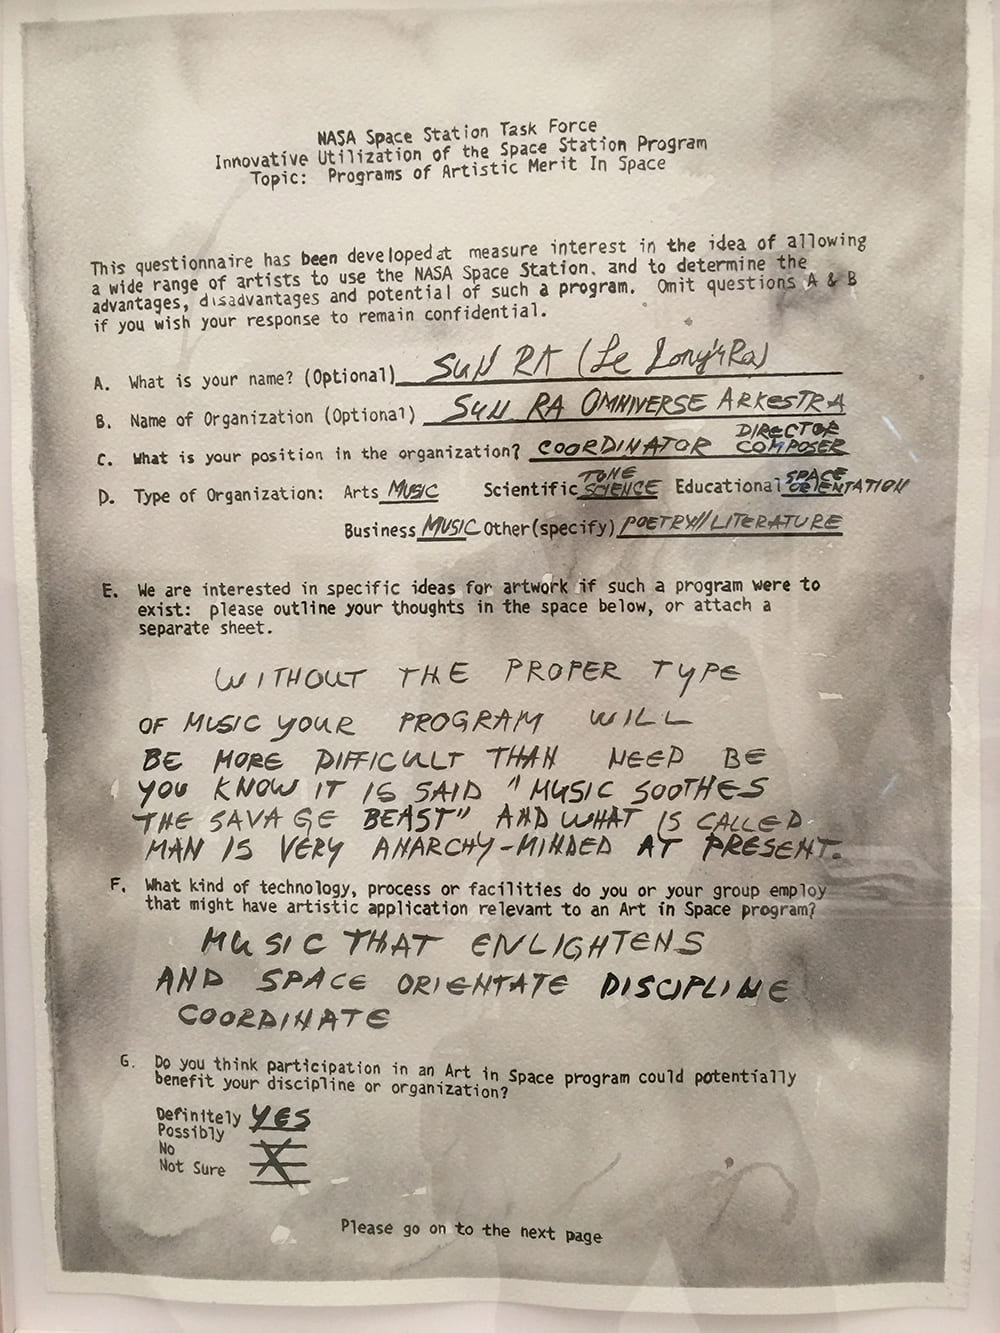 NASA Space Station Task Force
Innovative Utilization of the Space Station Program
Topic: Programs of Artistic Merit In Space
This questionnaire has been developed at measure interest in the idea of allowing
a wide range of artists to use the NASA Space Station. and to determine the
advantages, disadvantages and potential of such a program. Omit questions A & B
if you wish your response to remain confidential.
A. What is your name? (Optional) SUN RA (Le Sony'r Ra)
B. Name of Organization (Optional) SUN RA OMNIVERSE ARKESTRA
C. What is your position in the organization? COORDINATOR DIRECTOR COMPOSER
D. Type of Organization: Arts MUSIC Scientific TONE SCIENCE Educational SPACE ORIENTATION
Business MUSIC Other(specify) POETRY//LITERATURE
E. We are interested in specific ideas for artwork if such a program were to
exist: please outline your thoughts in the space below, or attach a
separate sheet.
WITHOUT THE PROPER TYPE
OF MUSIC YOUR PROGRAM WILL
BE MORE DIFFICULT THAN NEED BE
YOU KNOW IT IS SAID "MUSIC SOOTHES
THE SAVAGE BEAST" AND WHAT IS CALLED
MAN IS VERY ANARCHY-MINDED AT PRESENT.
F. What kind of technology, process or facilities do you or your group employ
that might have artistic application relevant to an Art in Space program?
MUSIC THAT ENLIGHTENS
AND SPACE ORIENTATE DISCIPLINE
COORDINATE
G. Do you think participation in an Art in Space program could potentially
benefit your discipline or organization?
Definitely YES
Possibly
No X
Not Sure
Please go on to the next page